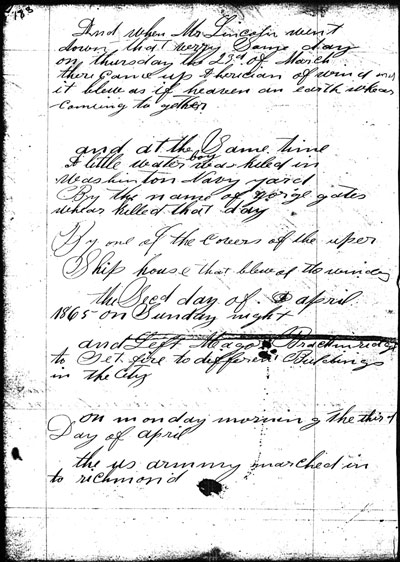 188
And when Mr Lincoln went
down that verry Same day
on thursday the 23d of March
there came up A herican of wind and
it blew as if heaven an earth whas
comming to gether
and at the Same time
A little water boy was killed in
washinton Navy yard
By the name of gorge gates
whas killed that day
By one of the covers of the uper
Ship house that blew of the
the Secd day of april
1865 on Sunday night
and Left Mago
to Set fire to different Buildings
in the city
on monday morning the third
Day of april
the us armmy marched in
to richmond